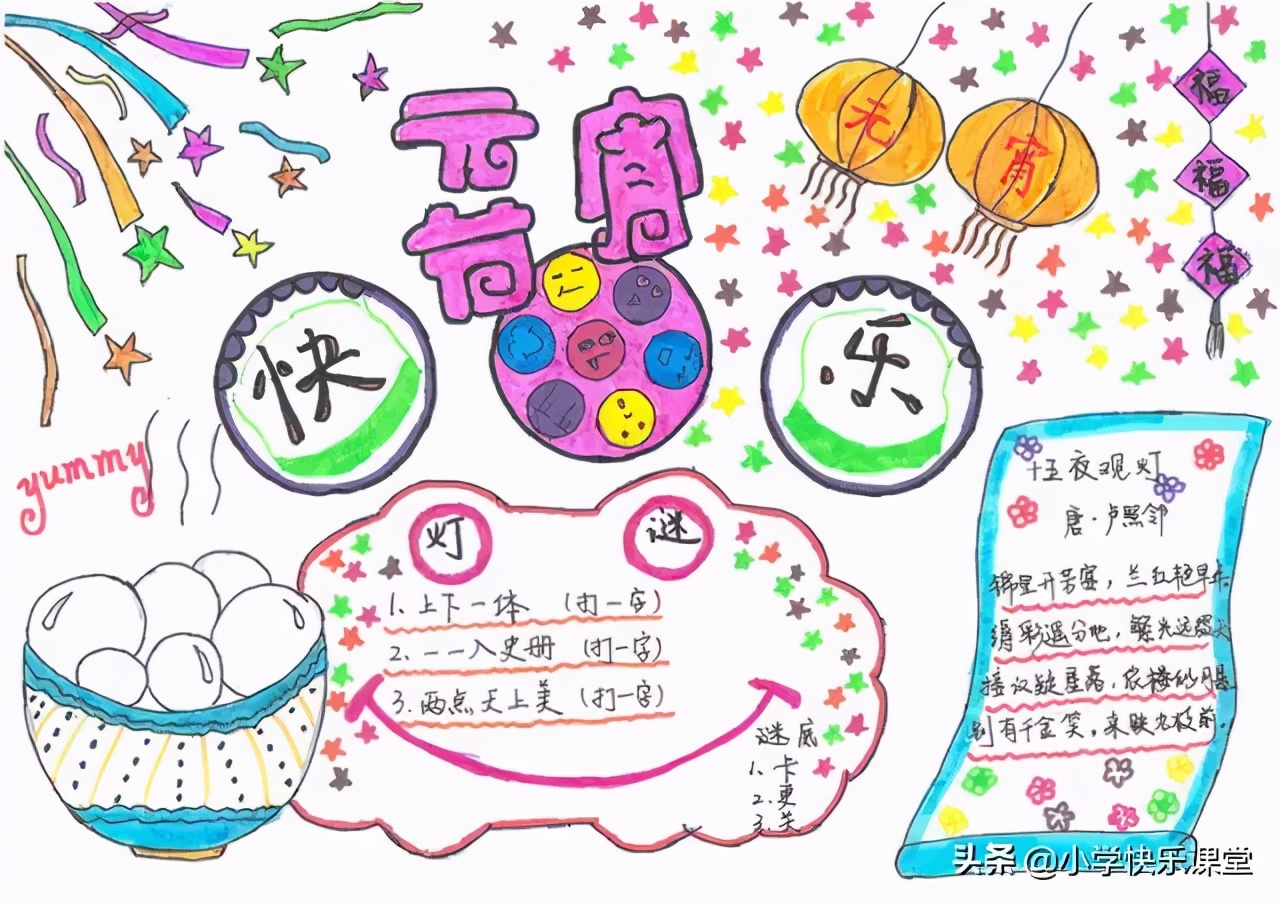 元宵
节
快
乐
元
宵
福
福
福
yummy
灯 谜
1. 上下一体 (打一字)
2. 一一入史册 (打一字)
3. 两点天上美 (打一字)
谜底
1. 卡
2. 更
3. 关
十五夜观灯
唐·卢照邻
开芳宴，兰红艳早年
缛彩遥分地，繁光远缀天
接汉疑星落，依楼似月悬
别有千金笑，来映九枝前。
头条 @小学快乐课堂